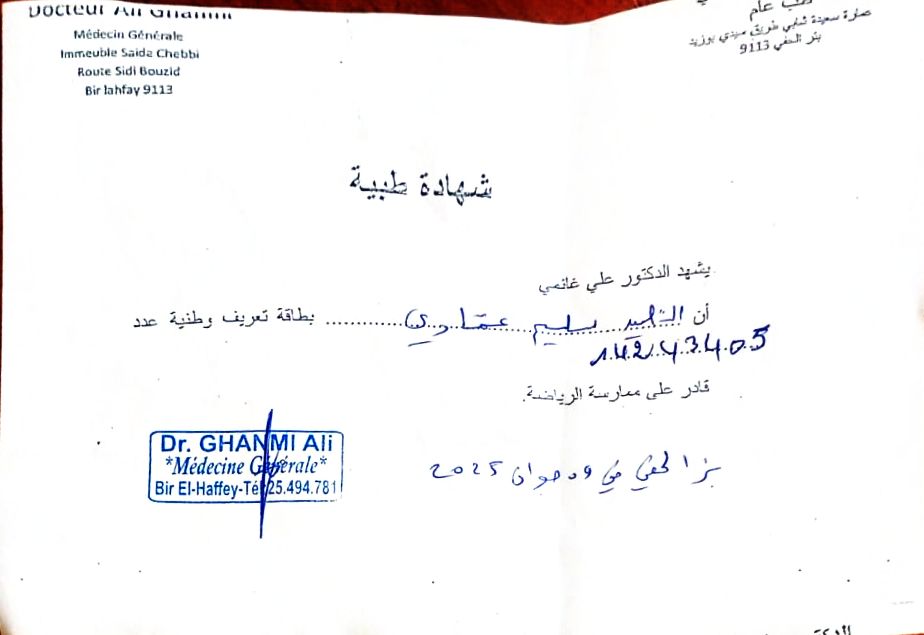 Docteur Ali Ghanmi
Médecin Générale
Immeuble Saida Chebbi
Route Sidi Bouzid
Bir lahfay 9113
طب عام
عمارة سعيدة شابي طريق سيدي بوزيد
بئر الحفي 9113
شهادة طبية
يشهد الدكتور علي غانمي
أن التلميذ سليم عمّاوي بطاقة تعريف وطنية عدد
14243405
قادر على ممارسة الرياضة.
بئر الحفي في 09 جوان 2025
Dr. GHANMI Ali
*Médecine Générale*
Bir El-Haffey-Tél 25.494.781